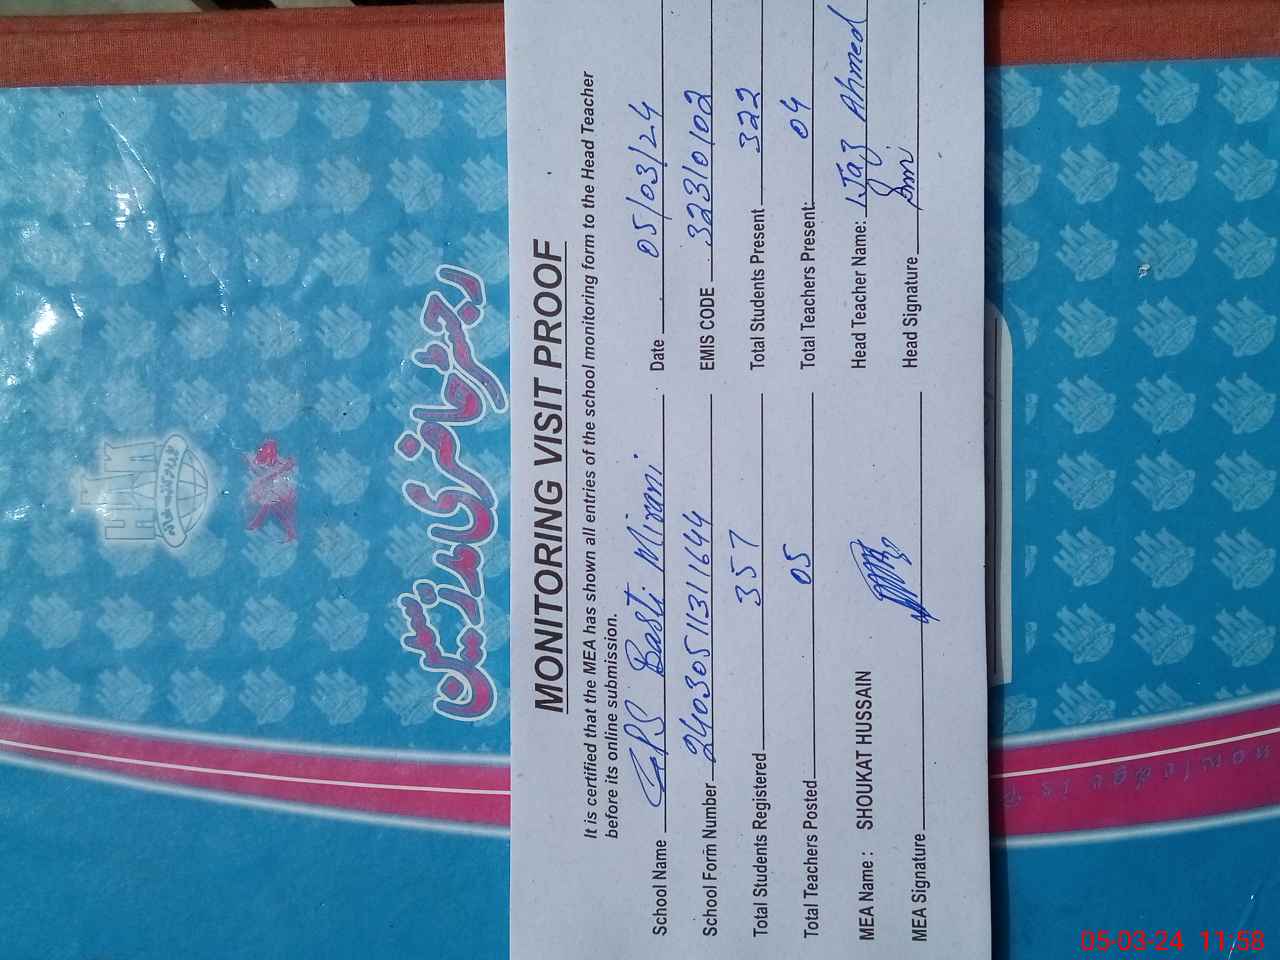 MONITORING VISIT PROOF
It is certified that the MEA has shown all entries of the school monitoring form to the Head Teacher
before its online submission.
School Name GPS Basti Mirani Date 05/03/24
School Form Number 240305113111644 EMIS CODE 32310102
Total Students Registered 357 Total Students Present 322
Total Teachers Posted 05 Total Teachers Present: 04
MEA Name : SHOUKAT HUSSAIN Head Teacher Name: IJaz Ahmed
MEA Signature Head Signature
رجسٹر حاضری مدرسین
05-03-24 11:58